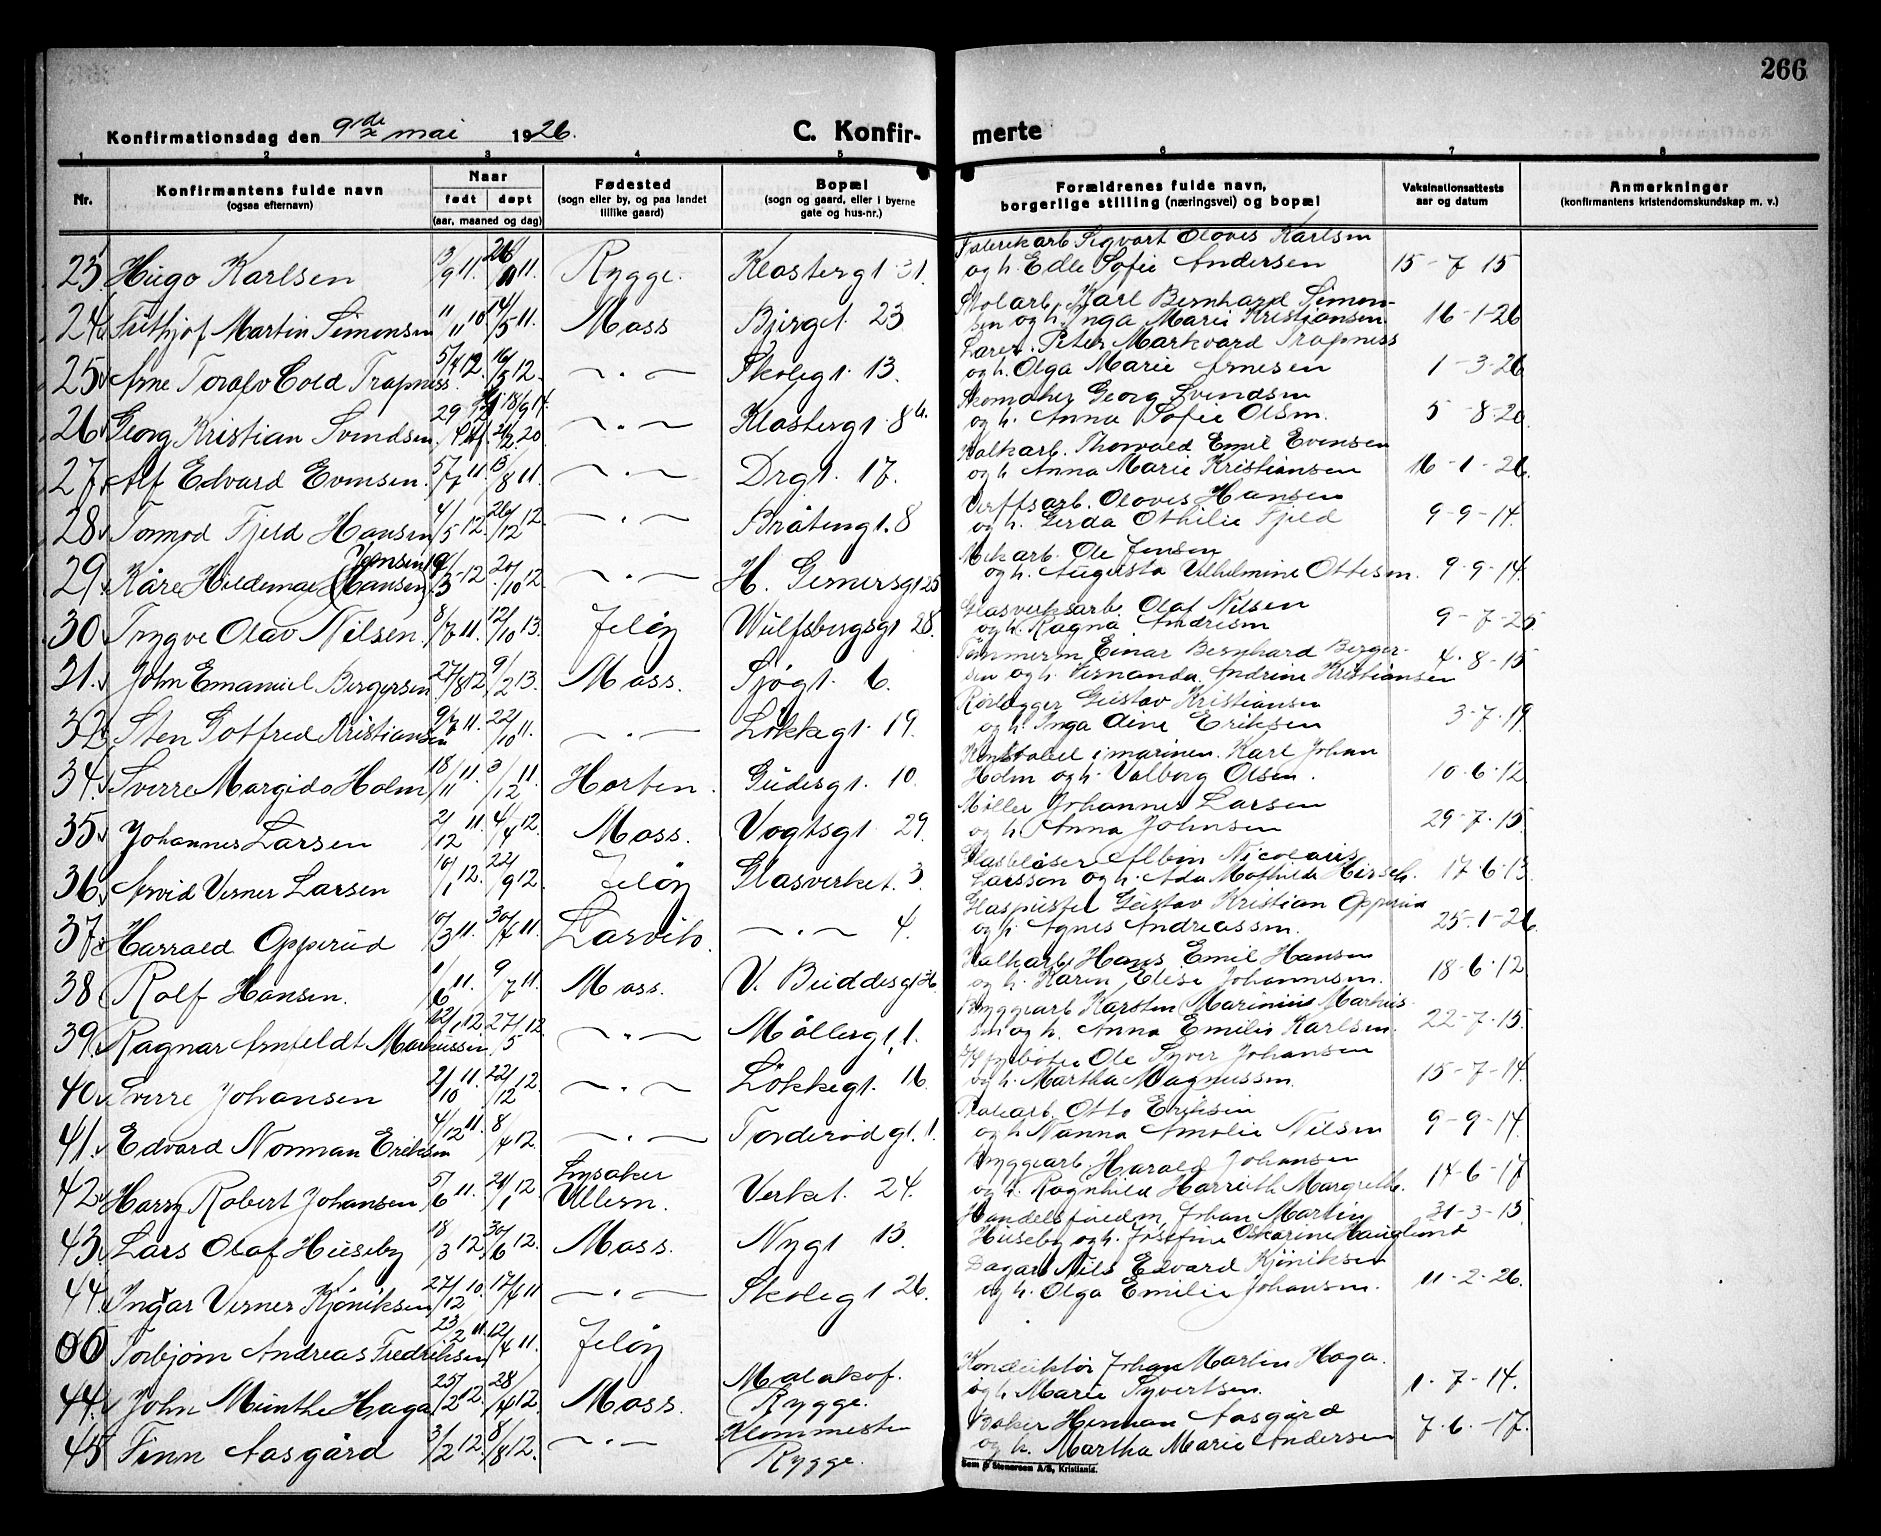 266
Konfirmationsdag den 9de mai 1926. C. Konfir- merte
1 2 3 4 5 6 7 8
Nr. Konfirmantens fulde navn (ogsaa efternavn) Naar født døpt (aar, maaned og dag) Fødested (sogn eller by, og paa landet tillike gaard) Bopæl (sogn og gaard, eller i byerne gate og hus-nr.) Forældrenes fulde navn, borgerlige stilling (næringsvei) og bopæl Vaksinationsattests aar og datum Anmerkninger (konfirmantens kristendomskundskap m. v.)
23 Hugo Karlsen 13/9 11. Rygge. Klostergt. 31. Sigvart Oloves Karlsen
og h. Edle Sofie Andersen 15-7-15
24 Frithjof Martin Simonsen 11/11 10 14/5 11. Moss Bjerget 23 Karl Bernhard Simon-
sen og h. Inga Marie Kristiansen 16-1-26
25 Arne Toralv Cold Trapness. 5/4 12. 16/5 12. Skolegt. 13. Peter Markvard Trapness
og h. Olga Marie Arnesen 1-3-26
26 Georg Kristian Svendsen. Klostergt. 8b. Skomaker Georg Svendsen
og h. Anna Sofie Olsen. 5-8-20
27 Alf Edvard Evensen. 5/7 11. 13/8 11. Drgt. 17. Valkarb. Thorvald Emil Evensen
og h. Anna Marie Kristiansen 16-1-26.
28 Tormod Fjeld Hansen 4/5 12. 26/12 12. Bråtengt. 8 Verftsarb. Oloves Hansen
og h. Gerda Othilie Fjeld 9-9-14.
29 Kåre Hildemar (Hansen) Jensen 20/10 12. H. Gernersgt 25 Mekarb. Ole Jensen
og h. Augusta Vilhelmine Ottesen. 9-9-14.
30 Trygve Olav Nilsen. 8/7 11. 12/10 13. Jeløy Wulfsbergsgt 28. Glasverksarb. Olaf Nilsen
og h. Ragna Andresen 9-7-25
31. John Emanuel Bergersen 27/8 12. 9/2 13. Moss. Sjøgt. 6. Tømmerm Einar Bernhard Berger-
sen og h. Vernanda Andrine Kristiansen 4-8-15
32 Sten Gotfred Kristiansen 9/7 11. 22/10 11. Løkkegt. 19. Rørlegger Gustav Kristiansen
og h. Inga Aline Eriksen 3-7-19
34. Sverre Margido Holm 18/11 11. 3/12 11. Horten. Gudesgt. 10. Konstabel i marinen. Karl Johan
Holm og h. Valborg Olsen. 10-6-12.
35 Johannes Larsen 2/12 11. 4/4 12. Moss. Vogtsgt. 29. Møller Johannes Larsen
og h. Anna Johnsen 29-7-15.
36 Arvid Verner Larsen 10/1 12. 22/9 12. Jeløy Glasverket. 3. Glasblåser Albin Nicolaus
Larsson og h. Ada Mathilde Hirsch. 17-6-13.
37 Harrald Opperud 10/3 11. 30/7 11. Larvik. 4. Glaspuster Gustav Kristian Opperud
og h. Agnes Andreassen. 25-1-26.
38 Rolf Hansen. 1/6 11. 9/7 11. Moss. V. Buddesgt Valkarb. Hans Emil Hansen
og h. Karen Elise Johannesen. 18-6-12
39 Ragnar Arnfeldt Markussen 12/1 12. 27/5 12. Møllergt. 1. Bryggearb Karsten Marinius Markus-
sen og h. Anna Emilie Karlsen. 22-7-15.
40 Sverre Johansen 2/10 11. 22/12 12. Løkkegt. 16. Ole Syver Johansen
og h. Martha Magnussen. 15-7-14.
41. Edvard Norman Eriksen 4/12 11. 8/4 12. Torderødgt. 1. Otto Eriksen
og h Nanna Amalie Nilsen 9-9-14.
42 Harry Robert Johansen 5/6 11. 21/1 12 Lysaker
Ullern. Verket. 24. Bryggearb. Harald Johansen
og h. Ragnhild Harrieth Margrethe. 14-6-17
43 Lars Olaf Huseby 18/3 12. 30/6 12. Moss. Nygt 13. Handelsfuldm, Johan Martin
Huseby og h. Josefine Oskarine Hauglund 31-3-15.
44. Ingvar Verner Kjøniksen 27/12 10. 17/4 11 Skolegt 26. Nils Edvard Kjøniksen
og h. Olga Emilie Johansen. 11-2-26.
00 Torbjørn Andreas Fredriksen 23/2 11. 12/4 11. Jeløy
44. John Munthe Haga 25/2 12. 28/4 12. Moss. Malakof.
Rygge. Konduktør Johan Martin Haga.
og h. Marie Syvertsen. 1-7-14.
45 Finn Aasgård 3/2 12. 8/8 12. Klommesten
Rygge. Baker Herman Aasgård
og h. Martha Marie Andersen 7-6-17.
Sem & Stenersen A/S, Kristiania.